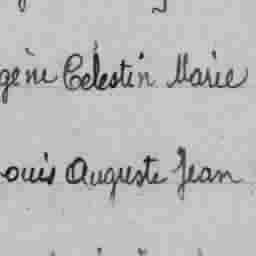 gène Célestin Marie
ouis Auguste Jean